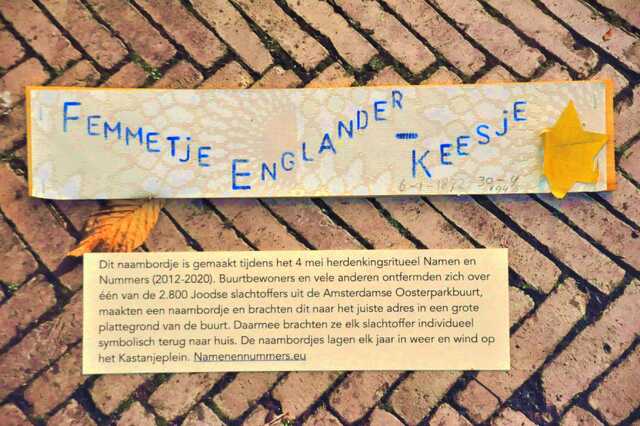 FEMMETJE ENGLANDER - KEESJE
6-1-1872 30-4
1943
Dit naambordje is gemaakt tijdens het 4 mei herdenkingsritueel Namen en
Nummers (2012-2020). Buurtbewoners en vele anderen ontfermden zich over
één van de 2.800 Joodse slachtoffers uit de Amsterdamse Oosterparkbuurt,
maakten een naambordje en brachten dit naar het juiste adres in een grote
plattegrond van de buurt. Daarmee brachten ze elk slachtoffer individueel
symbolisch terug naar huis. De naambordjes lagen elk jaar in weer en wind op
het Kastanjeplein. Namenennummers.eu